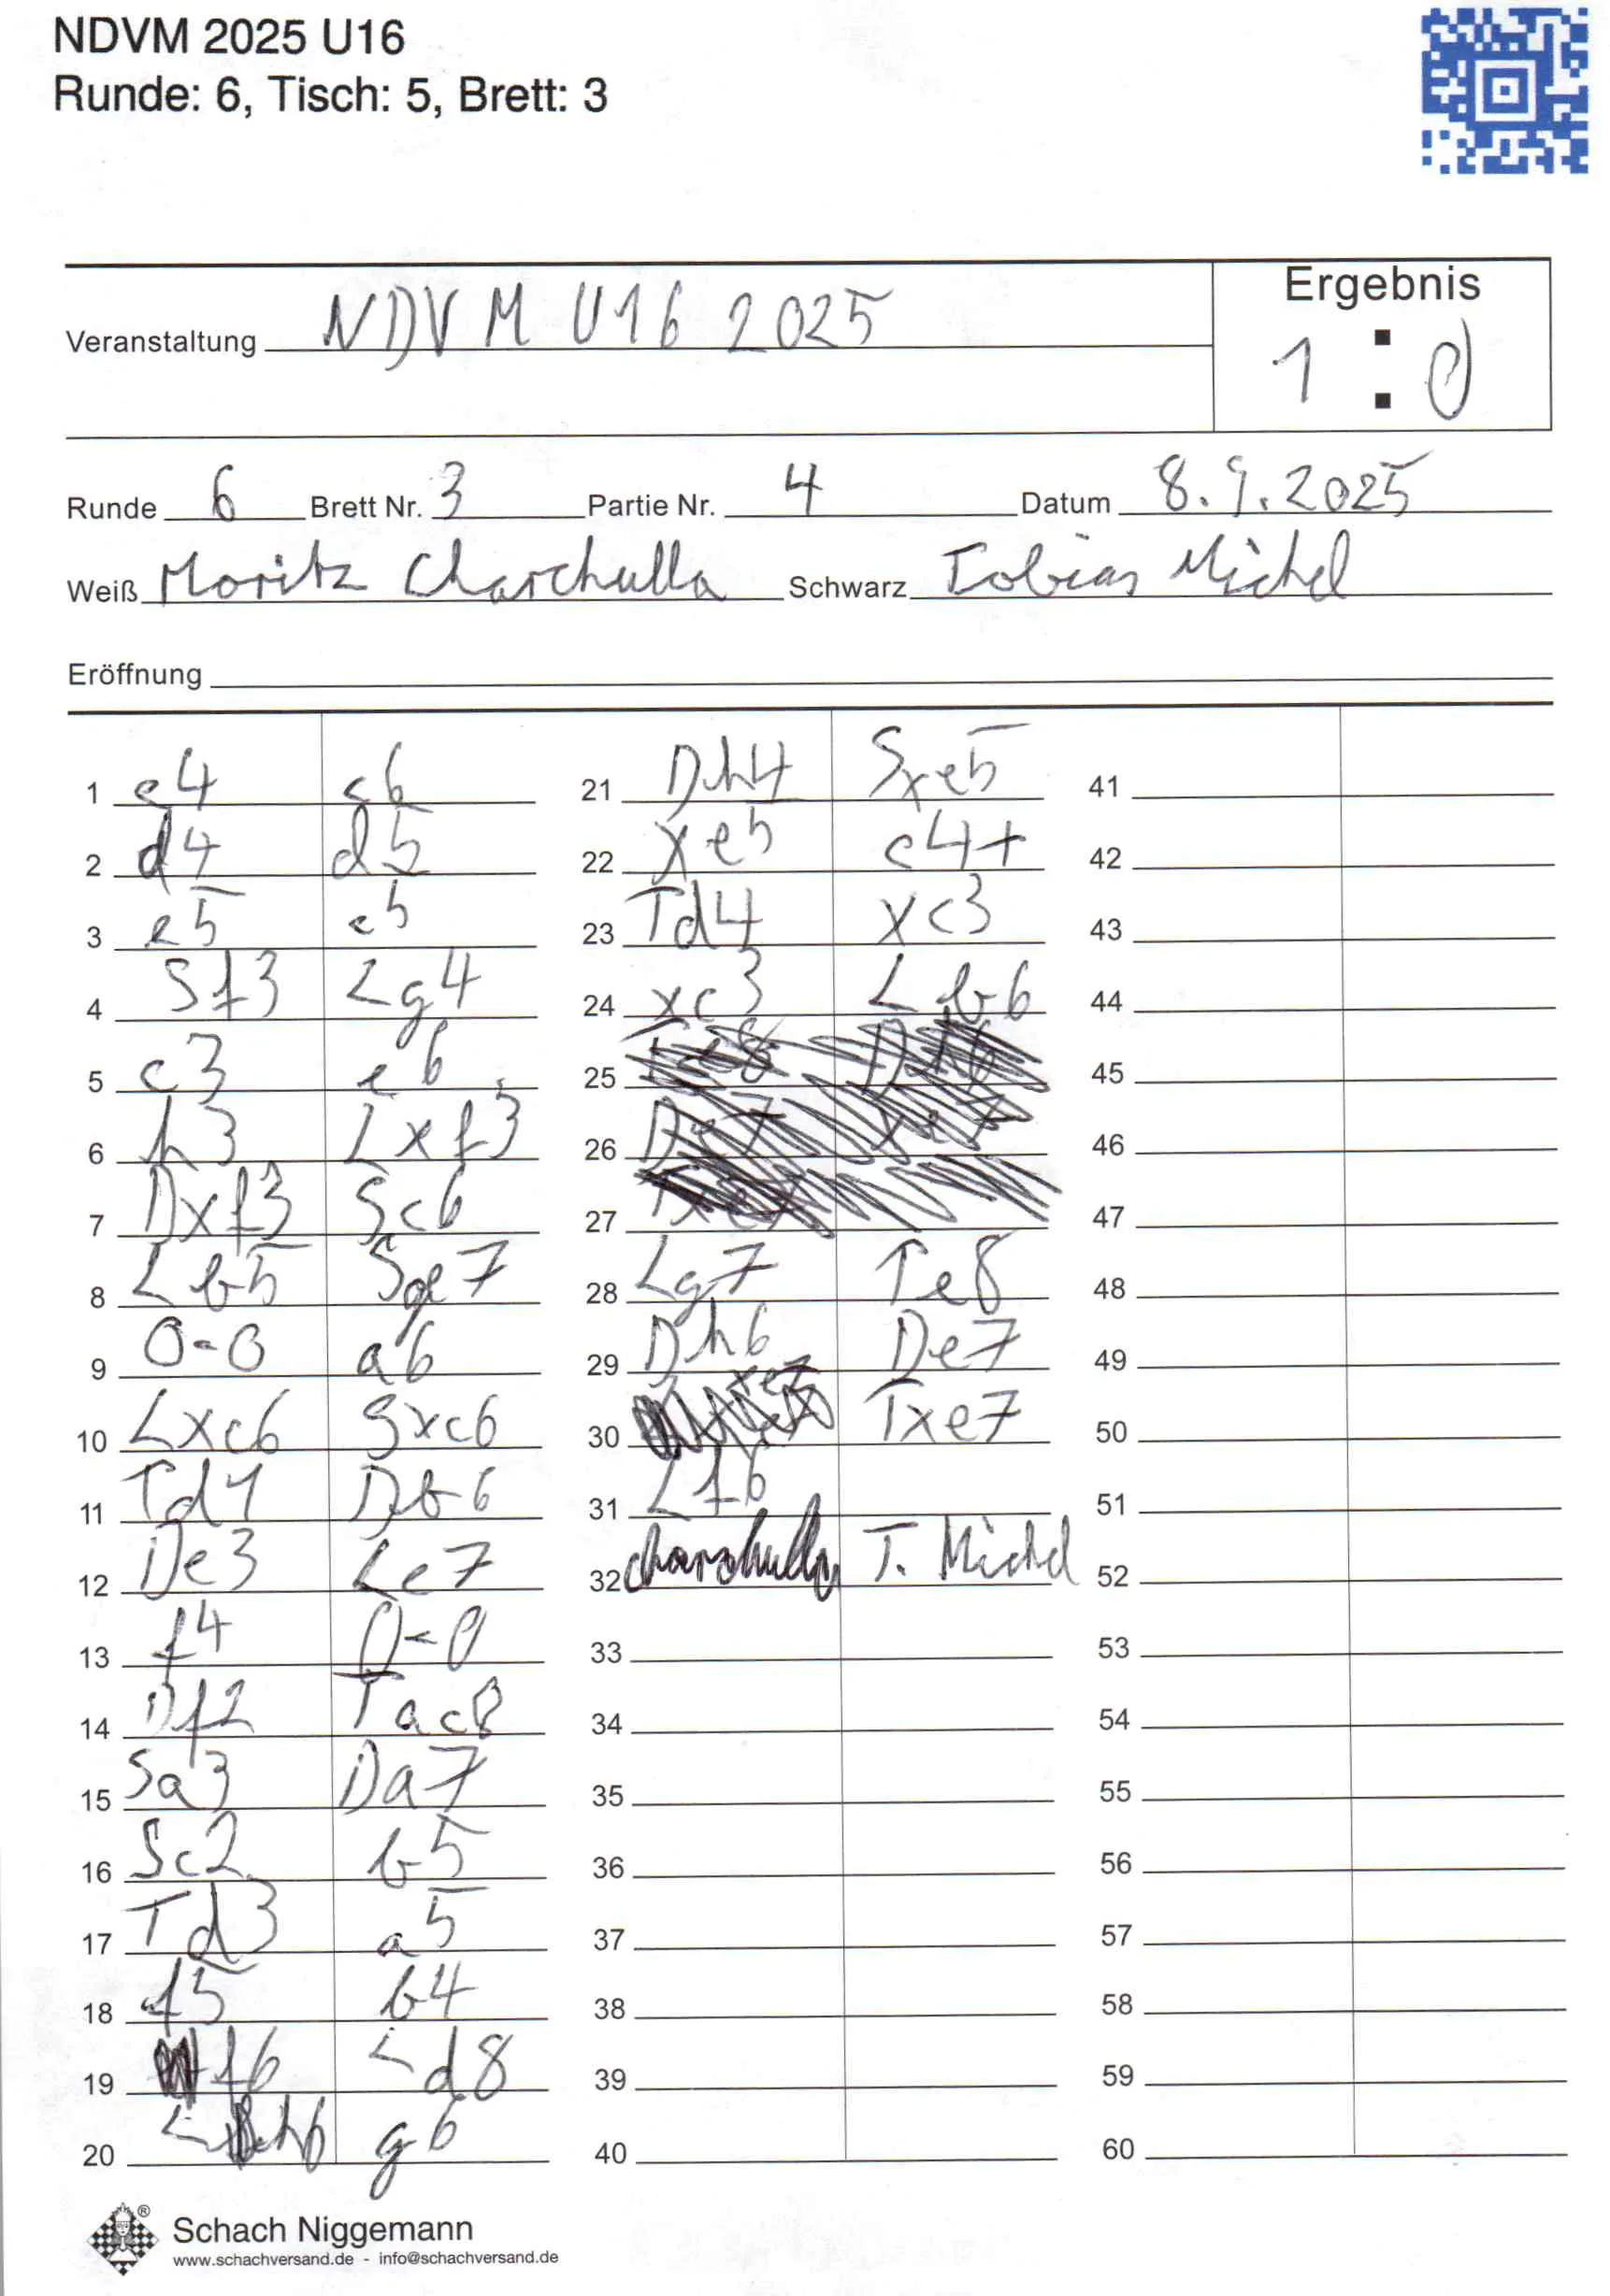 NDVM 2025 U16
Runde: 6, Tisch: 5, Brett: 3
Veranstaltung NDVM U16 2025
Ergebnis
1 : 0
Runde 6 Brett Nr. 3 Partie Nr. 4 Datum 8.9.2025
Weiß Moritz Charchulla Schwarz Tobias Michel
Eröffnung
1 e4 c6
2 d4 d5
3 e5 c5
4 Sf3 Lg4
5 c3 e6
6 h3 Lxf3
7 Dxf3 Sc6
8 Lb5 Sge7
9 0-0 a6
10 Lxc6 Sxc6
11 Td1 Db6
12 De3 Le7
13 f4 0-0
14 Df2 Tac8
15 Sa3 Da7
16 Sc2 b5
17 Td3 a5
18 f5 b4
19 f6 Ld8
20 Lh6 g6
21 Dh4 Sxe5
22 xe5 c4+
23 Td4 xc3
24 xc3 Lb6
25
26
27
28 Lg7 Te8
29 Dh6 De7
30 Txe7
31 Lf6
32 Charchulla T. Michel
33
34
35
36
37
38
39
40
41
42
43
44
45
46
47
48
49
50
51
52
53
54
55
56
57
58
59
60
Schach Niggemann
www.schachversand.de - info@schachversand.de